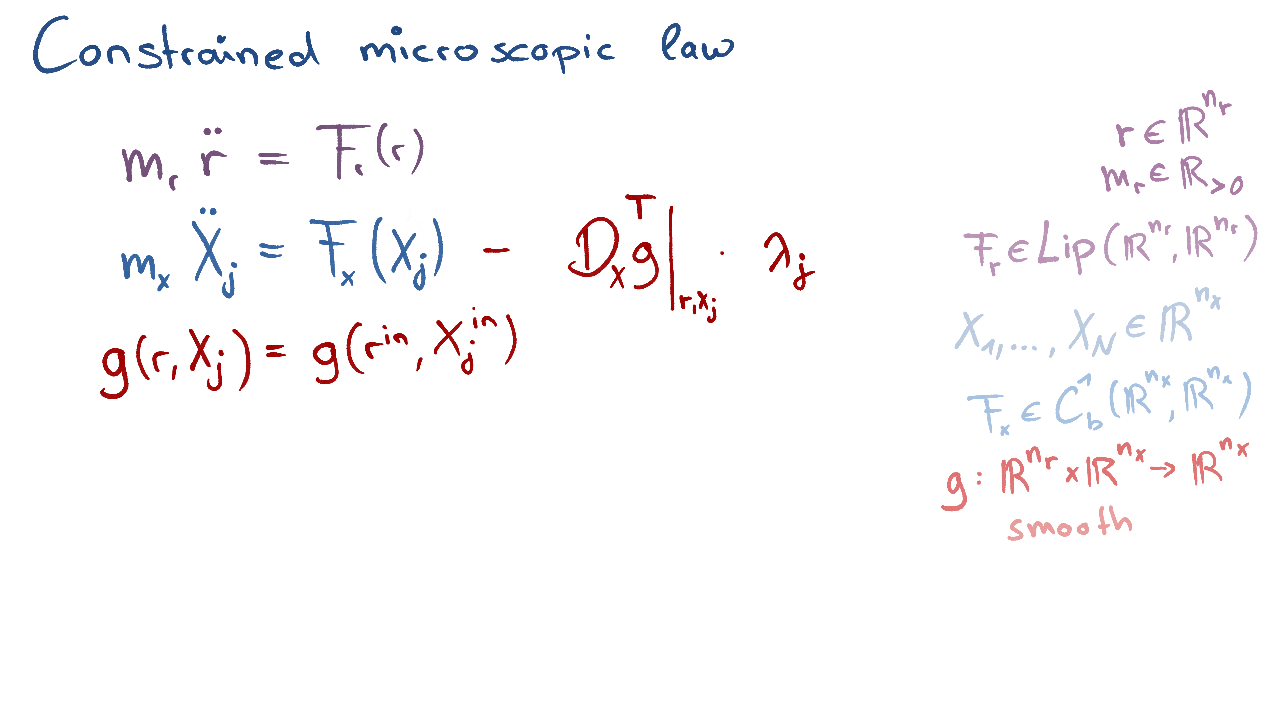 Constrained microscopic law
m_r r̈ = F_r(r)
m_x Ẍ_j = F_x(X_j) - D_x g^T|_{r,X_j} · λ_j
g(r, X_j) = g(r^{in}, X_j^{in})
r ∈ ℝ^{n_r}
m_r ∈ ℝ_{>0}
F_r ∈ Lip(ℝ^{n_r}, ℝ^{n_r})
X_1, ..., X_N ∈ ℝ^{n_x}
F_x ∈ C_b^1(ℝ^{n_x}, ℝ^{n_x})
g : ℝ^{n_r} × ℝ^{n_x} → ℝ^{n_x}
smooth